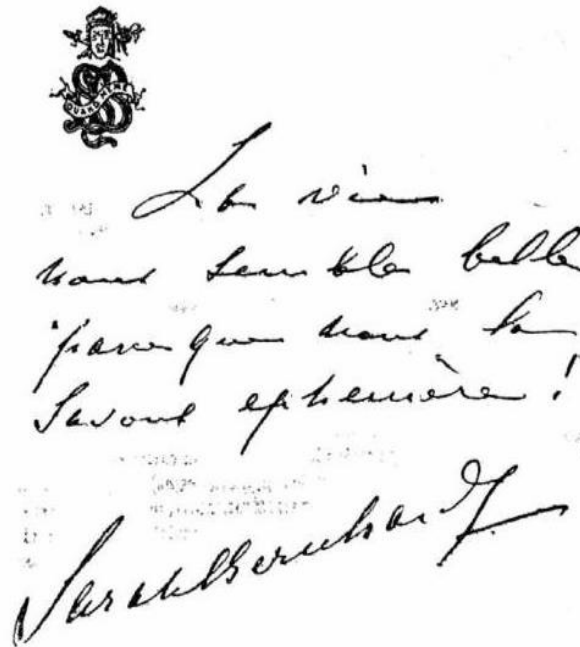 QUAND MÊME
La vie
nous semble belle
parce que nous la
savons ephemère !
Sarah Bernhardt